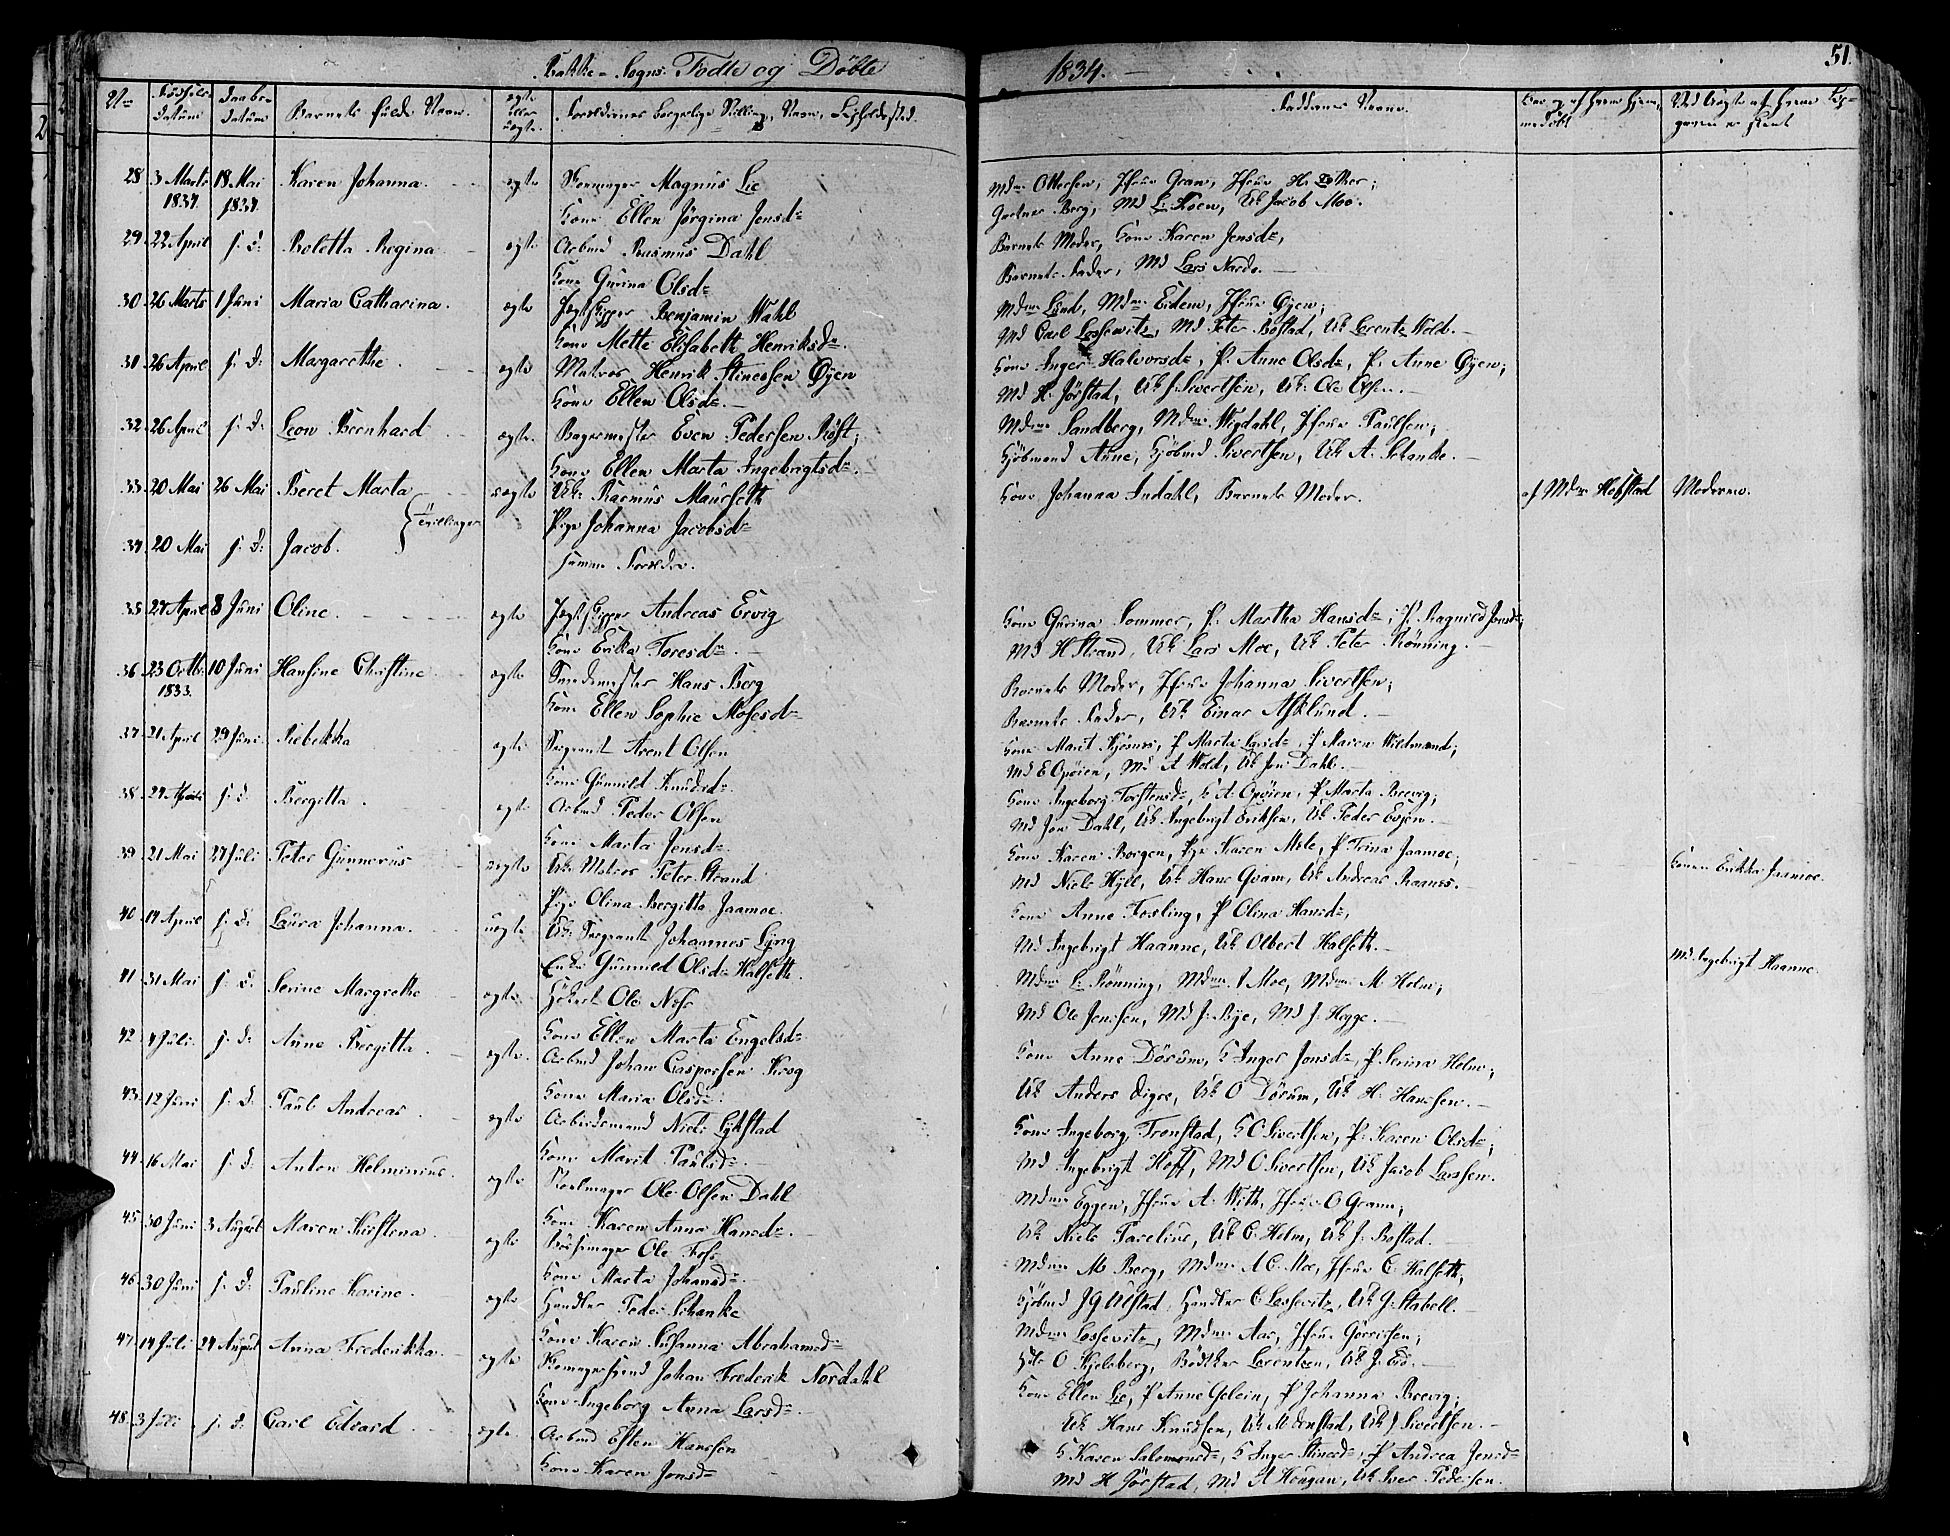 Bakke - Sogns Födte og Döbte
1834. 51.
No Fødsels Datum Daabs Datum Barnets fulde Navn. ægte eller uægte. Forældrenes borgerlige Stilling, Navn, Opholdssted.
Faddernes Navne. 
28 3 Marts 1834. 18 Mai 1834. Karen Johanna. ægte Magnus Lie
Kone Ellen Jørgina Jensdr
Mdme Ottersen, Jfrue Gram, Jfrue H.
Gartner Berg, Md L: Koen, Uk Jacob Moe.
29. 22 April s. d. Roletta Regina ægte Arbmd Rasmus Dahl
Kone Gurina Olsdr
Barnets Moder, Kone Karen Jensdr,
Barnets Fader, Md Lars Nardo.
30. 26 Marts 1 Juni Maria Catharina. ægte Jægtskipper Benjamin Wahl
Kone Mette Elisabeth Henriksdr.
Mdme Lund, Mdme Eidem, Jfrue Øyen;
Md Carl Lossewitz, Md Peter Bostad, Uk Lorentz Wold.
31. 26 April s. d: Margarethe. ægte Matros Henrik Stinessen Øyen
Kone Ellen Olsdr.
Kone Inger Halvorsdr, P. Anne Olsdr, P. Anne Øyen;
Md H. Jörstad, Uk J. Sivertsen, Uk: Ole
32. 26 April s. d. Leon Bernhard ægte. Bagermester Even Pedersen Röst;
Kone Ellen Marta Ingebrigtsdr.
Mdme Sandberg, Mdme Wigdahl, Jfrue Paulsen;
Kjöbmand Aune, Kjöbmd Sivertsen, Uk A. Schanke.
33. 20 Mai 26 Mai Beret Marta uægte Uk: Rasmus Mauseth
Pige Johanna Jacobsdr
Tvillinger
Kone Johanna Indahl, Barnets Moder. af Mdme Hofstad Moderen.
34. 20 Mai s. d: Jacob.
samme Forældre.
35 27 April 8 Juni Oline. ægte Jægtskipper Andreas Ervig
Kone Erika Toresdr.
Kone Gurina Sommer, P. Martha Hansdr; P. Ragnild Jonsdr,
Md H Strand, Uk Lars Moe, Uk Peter Rönning.
36 23 Octbr 1833. 10 Juni Hansine Christine ægte Smedmester Hans Berg
Kone Ellen Sophie Mosesdr
Barnets Moder, Jfrue Johanna Sivertsen;
Barnets Fader, Uk Einar Asklund.
37. 21 April 29 Juni. Rebekka ægte Sergeant Arent Olsen
Kone Gunnild Knudsdr.
Kone Marit P Marta Larsdr, P Maren Wildmand;
Md E Opöien, Md A Wold, Uk Jon Dahl.
38. s. d. Bergitta. ægte Arbmd Peder Olsen
Kone Marta Jensdr.
Kone Ingeborg Torstensdr, K A. Opöien, P Marta Brevig;
Md Jon Dahl, Uk Ingebrigt Eriksen, Uk Peder
39 21 Mai 27 Juli Peter Gunnerus uægte Uk: Matros Peter Strand
Pige Olina Bergitta Jaamoe.
Kone Karen Borgen, Pge Karen P Trina Jaamoe;
Md Niels Hyll, Uk Hans Qvam, Uk Andreas Raanes. Konen Erikka Jaamoe.
40 14 April s. d: Laura Johanna. uægte Uk: Sergeant Johannes Ljng
Enke Gunnild Olsdr Halseth.
Kone Anne Fosling, P Olina Hansdr,
Md Ingebrigt Haanne, Uk Olbert Halseth. Md Ingebrigt Haanne.
41 31 Mai s. d. Serine Margrethe ægte Ole
Kone Ellen Marta Engelsdr
Mdme L: Rönning, Mdme Moe, Mdme M Holm;
Md Ole Jenssen, Md J. Rye, Md J. Hegge.
42 4 Juli. s. d. Anne Bergitta. ægte. Arbmd Johan Caspersen Krog
Kone Maria Olsdr.
Kone Anne Dörum, K Inger Jonsdr, P Serina Holm;
Uk Anders Digre, Uk O Dörum, Uk H. Hanssen.
43. 12 Juni s. d. Paul Andreas. ægte Arbeidsmand Niels
Kone Marit Paulsdr.
Kone Ingeborg Tronstad, K O Sivertsen, P: Karen Olsdr;
Md Ingebrigt Hoff, Md O Sivertsen, Uk Jacob Larssen.
44 16 Mai s. d. Anton Helminius. ægte Ole Olsen Dahl
Kone Karen Anna Hansdr.
Mdme Eggen, Jfrue A. With, Jfrue O Gram;
Uk Niels Uk O. Holm, Uk J. Bostad.
45 30 Juni 3 August Maren Kirstina. ægte Bössemager Ole Foss
Kone Marta Johansdr.
Mdme M Berg, Mdme A C. Moe, Jfrue C. Halseth,
Kjöbmd J G Ulstad, Handler C Lossevitz, Uk J. Stabell.
46 30 Juni s. d. Pauline Karine. ægte Handler Peder Schanke
Kone Karen Susanna Abrahamsdr
Mdme Lossevitz, Mdme Aas, Jfrue Görrissen;
O Kjelsberg, Bödtker Lorentzen, Uk J.
47. 14 Juli 24 August Anna Frederikka. ægte Skomagersvend Johan Frederik Nordahl
Kone Ingeborg Anna Larsdr.
Kone Ellen Lie, P Anne P Johanna Brevig;
Uk Hans Knudsen, Uk M. Uk J Sivertsen.
48. 3 Juli s. d. Carl Edvard. ægte. Arbmd Esten Hanssen
Kone Karen Jonsdr
K Karen Salomonsdr, K Inger P Andrea Jensdr
Md H Jörstad, Md A Hougan, Uk Iver Pedersen.